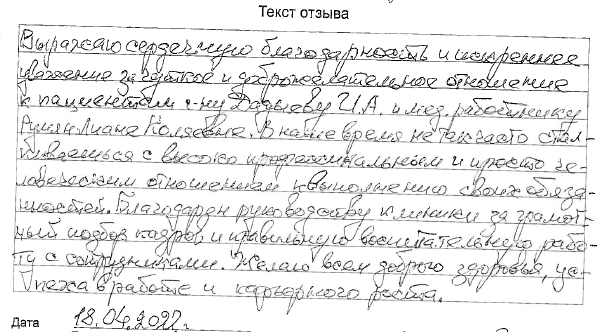 Текст отзыва
Выражаю сердечную благодарность и искреннее
уважение за чуткое и доброжелательное отношение
к пациентам г-ну Дадыеву И.А. и мед. работнику
Лиане Коляевне. В наше время не так часто стал-
киваешься с высоко профессиональным и просто че-
ловеческим отношением к выполнению своих обяза-
нностей. Благодарен руководству клиники за грамот-
ный подбор кадров и правильную воспитательную рабо-
ту с сотрудниками. Желаю всем доброго здоровья, ус-
пеха в работе и карьерного роста.
Дата 18.04.2022г.